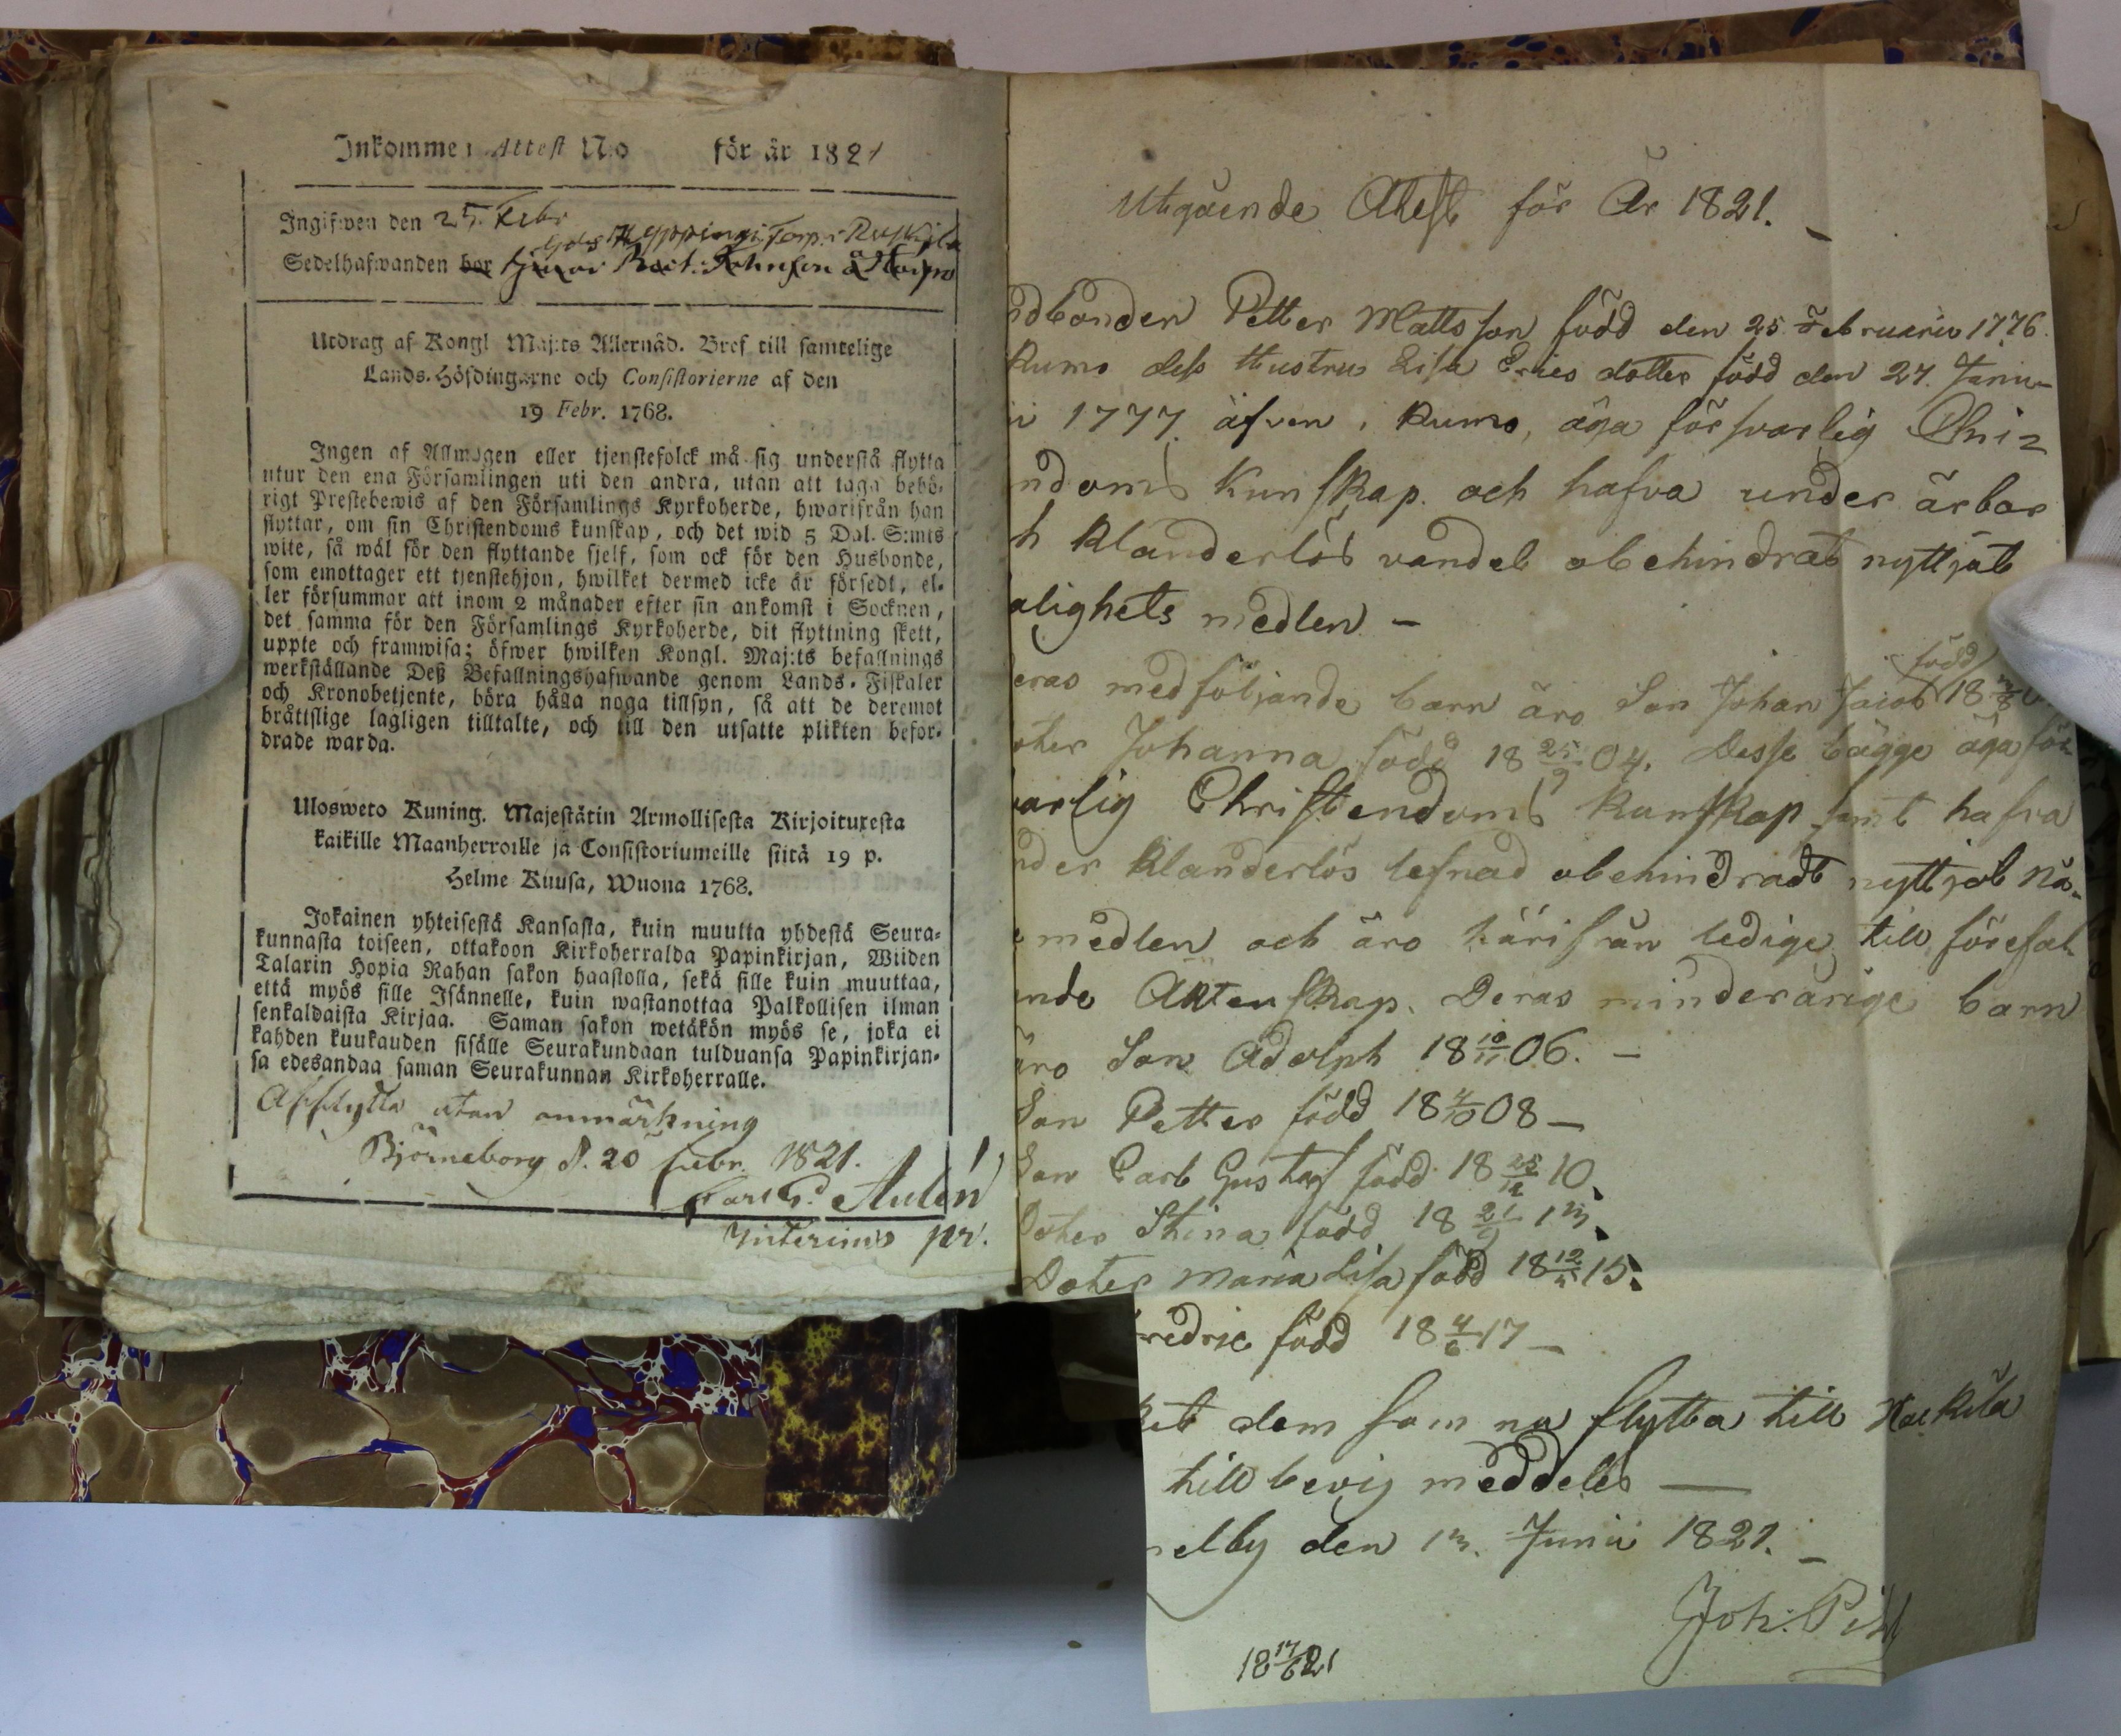 Inkommen Attest No för år 1821
Ingifwen den 25. Febr
Sedelhafwanden bor
Utdrag af Kongl Maj:ts Allernåd. Bref till samtelige
Lands-Höfdingarne och Consistorierne af den
19 Febr. 1768.
Ingen af Allmogen eller tjenstefolck må sig understå flytta
utur den ena Församlingen uti den andra, utan att taga behö-
rigt Prestebewis af den Församlings Kyrkoherde, hwarifrån han
flyttar, om sin Christendoms kunskap, och det wid 5 Dal. S:mts
wite, så wäl för den flyttande sjelf, som ock för den Husbonde,
som emottager ett tjenstehjon, hwilket dermed icke är försedt, el-
ler försummar att inom 2 månader efter sin ankomst i Socknen,
det samma för den Församlings Kyrkoherde, dit flyttning skett,
uppte och framwisa; öfwer hwilken Kongl. Maj:ts befallnings
werkställande Deß Befallningshafwande genom Lands-Fiskaler
och Kronobetjente, böra hålla noga tillsyn, så att de deremot
bråttslige lagligen tilltalte, och till den utsatte plikten befor-
drade warda.
Ulosweto Kuning. Majestätin Armollisesta Kirjoituxesta
kaikille Maanherroille ja Consistoriumeille siitä 19 p.
Helme Kuusa, Wuona 1768.
Jokainen yhteisestä Kansasta, kuin muutta yhdestä Seura-
kunnasta toiseen, ottakoon Kirkoherralda Papinkirjan, Wiiden
Talarin Hopia Rahan sakon haastolla, sekä sille kuin muuttaa,
että myös sille Isännelle, kuin wastanottaa Palkollisen ilman
senkaldaista Kirjaa. Saman sakon wetäkön myös se, joka ei
kahden kuukauden sisälle Seurakundaan tulduansa Papinkirjan-
sa edesandaa saman Seurakunnan Kirkoherralle.
Afflytta utan anmärkning
Björneborg d. 20 Febr. 1821.
Carl G. Aulén
Interims pr.
Utgående Attest för År 1821.
ndbonden Petter Mattsson född den 25 Februarii 1776.
Kumo dess Hustru Lisa Erics dotter född den 27. Janu-
ii 1777. äfven i Kumo, äga försvarlig Chri-
ndoms Kunskap. och hafva under ärbar
h Klanderlös vandel obehindrat nyttjat
alighets medlen -
eras medföljande barn äro Son Johan Jacob född 18
oter Johanna född 18 25/9 04. Desse bägge äga för
varlig Christendoms kunskap samt hafva
nder klanderlös lefnad obehindradt nyttjat Nå-
e medlen och äro härifrån ledige till förefal-
ende Äktenskap. Deras minderårige barn
äro Son Adolph 18 10/11 06. -
Son Petter född 18 4/10 08 -
Son Carl Gustaf född 18 25/12 10.
Doter Stina född 18 21/9 13.
Doter Maria Lisa född 18 12/4 15.
redric född 18 4/6 17 -
ket dem som nu flytta till
till bevis meddeles
elby den 13. Junii 1821. -
Joh: Pihl
18 17/6 21